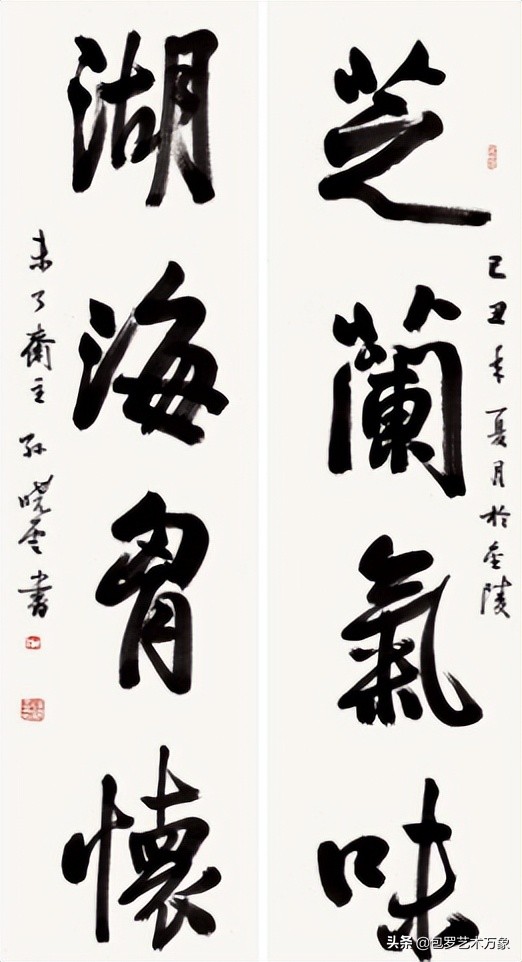 芝蘭氣味
己丑年夏月於金陵
湖海胷懷
未了齋主孫曉雲書
头条 @包罗艺术万象